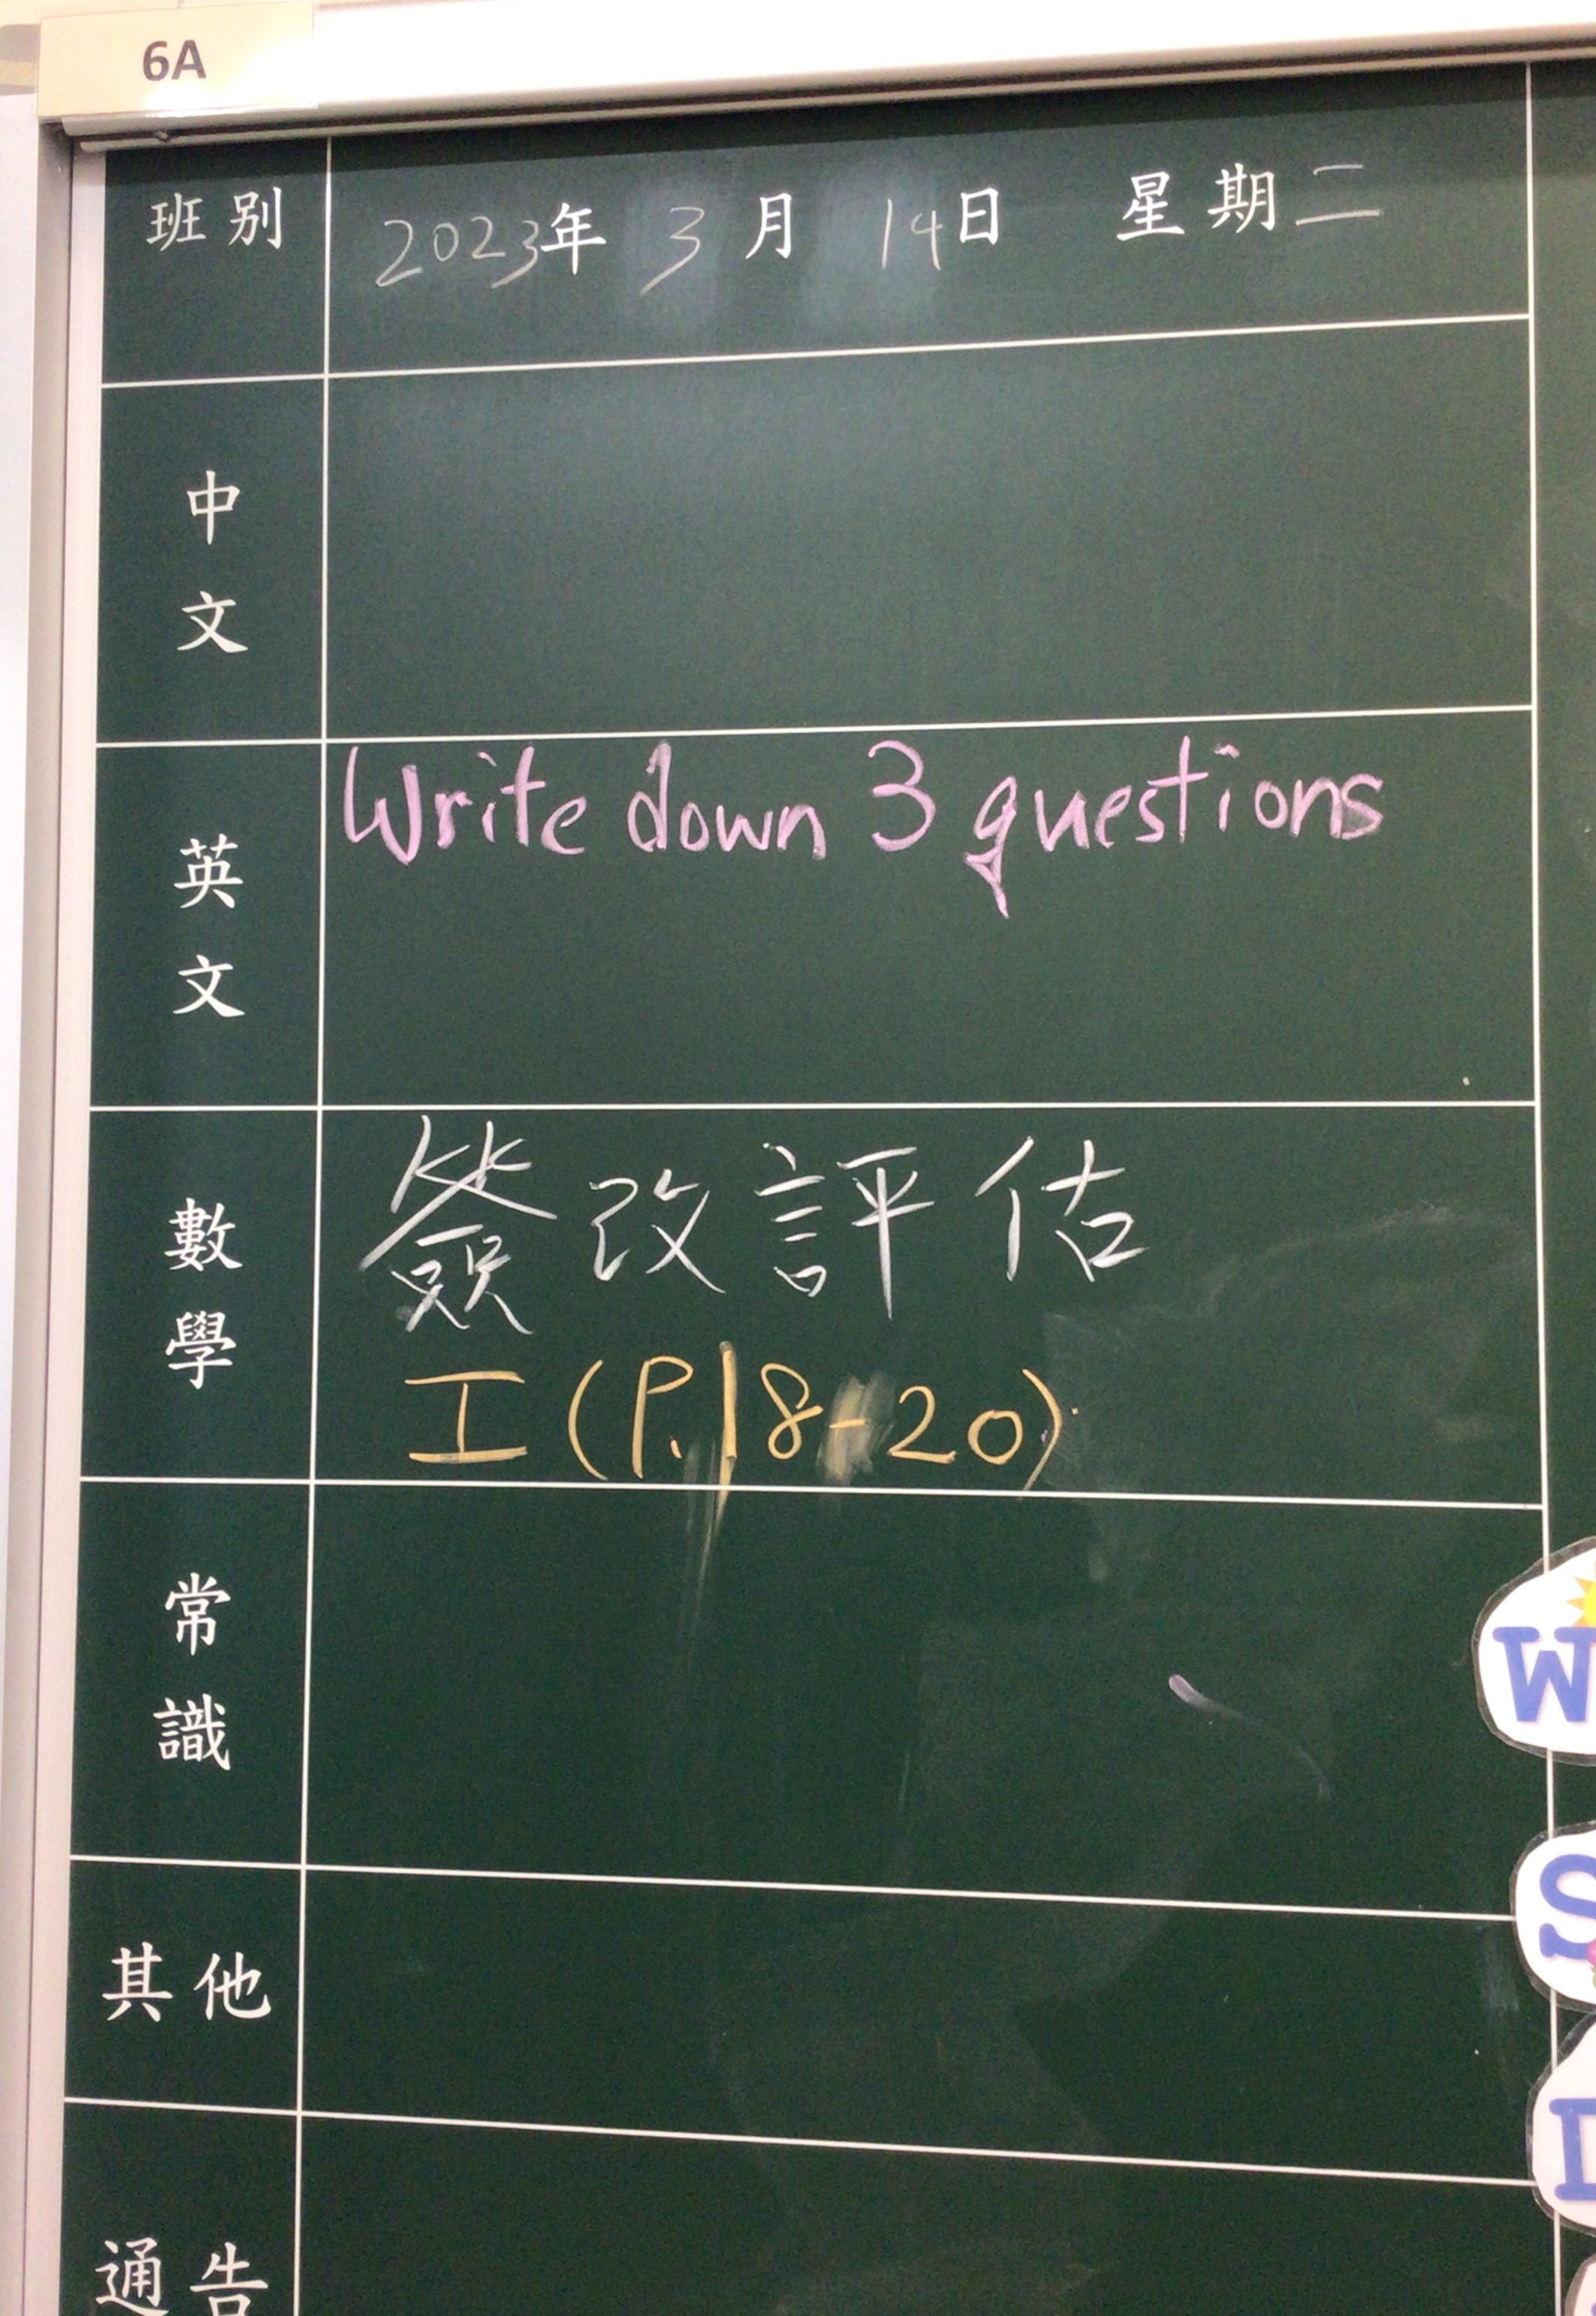 6A
班別 2023年 3月 14日 星期二
中文
英文 Write down 3 questions
數學 簽改評估
工(P.18-20)
常識
其他
通告
W
S